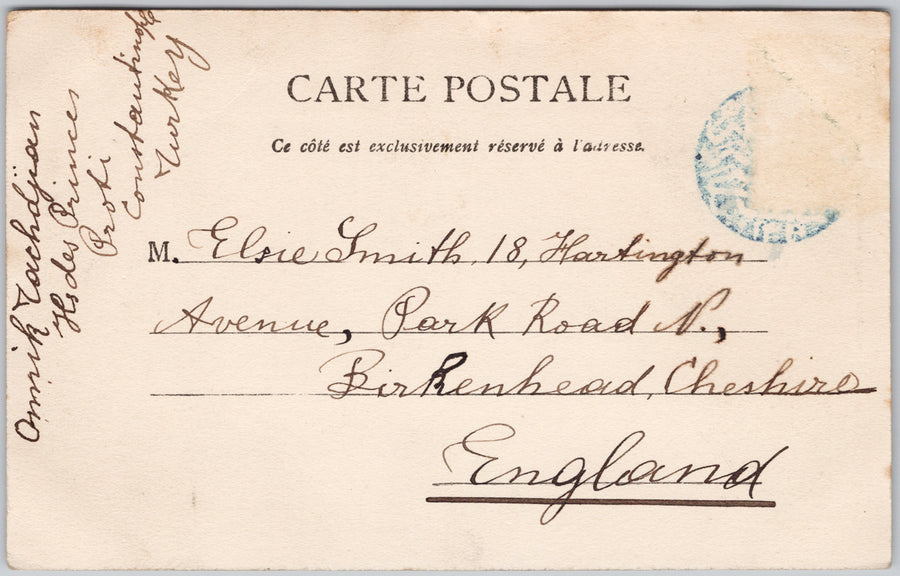 CARTE POSTALE
Ce côté est exclusivement réservé à l'adresse.
M. Elsie Smith, 18, Hartington
Avenue, Park Road N.,
Birkenhead, Cheshire
England
Onnik Tachdjian
Is des Princes
Proti
Constantinople
Turkey